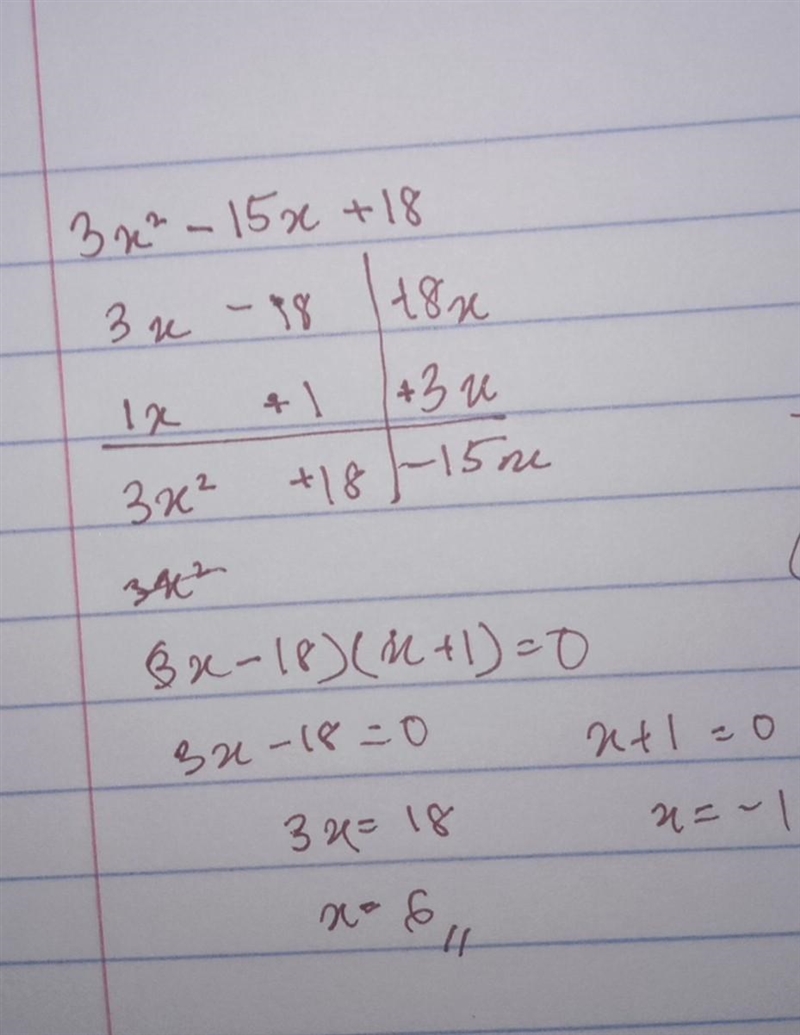 3x² - 15x + 18
3x - 18 | +8x
1x + 1 | +3x
3x² + 18 | -15x
3x²
(3x - 18)(x + 1) = 0
3x - 18 = 0 x + 1 = 0
3x = 18 x = -1
x = 6 〃